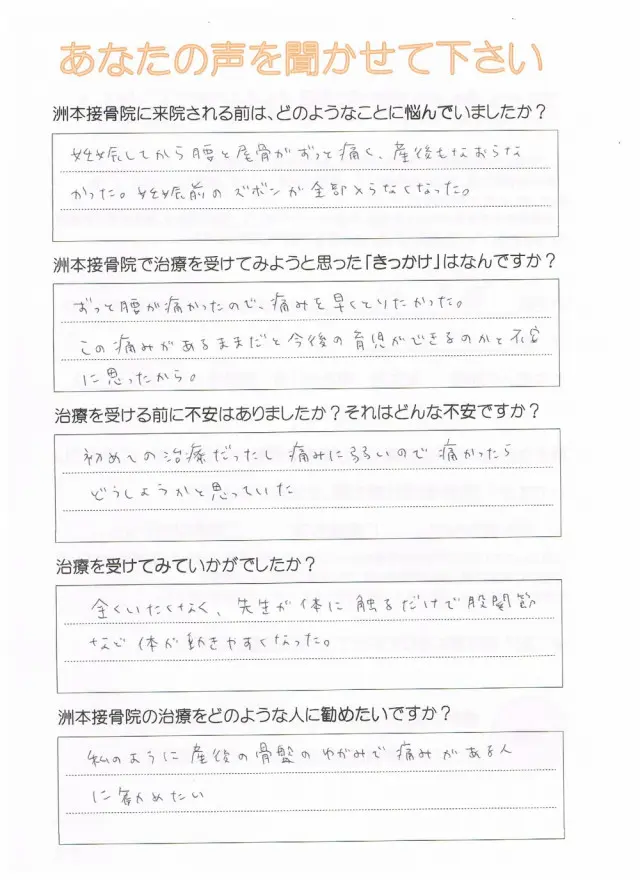 あなたの声を聞かせて下さい
洲本接骨院に来院される前は、どのようなことに悩んでいましたか？
妊娠してから腰と尾骨がずっと痛く、産後もなおらな
かった。妊娠前のズボンが全部入らなくなった。
洲本接骨院で治療を受けてみようと思った「きっかけ」はなんですか？
ずっと腰が痛かったので、痛みを早くとりたかった。
この痛みがあるままだと今後の育児ができるのかと不安
に思ったから。
治療を受ける前に不安はありましたか？それはどんな不安ですか？
初めての治療だったし痛みに弱いので痛かったら
どうしようかと思っていた
治療を受けてみていかがでしたか？
全くいたくなく、先生が体に触るだけで股関節
など体が動きやすくなった。
洲本接骨院の治療をどのような人に勧めたいですか？
私のように産後の骨盤のゆがみで痛みがある人
に勧めたい